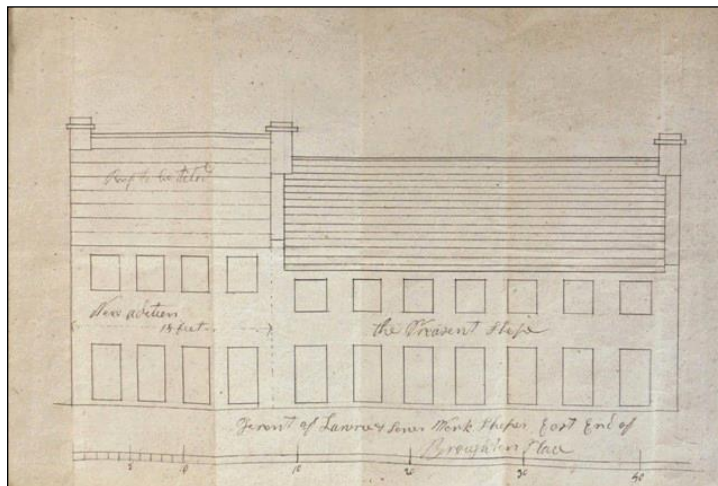 Roof to be tiled
New adition
18 feet
the Present Shope
Front of Lawrie & Sones Work Shopes East End of
Broughton Place
5 10 10 20 30